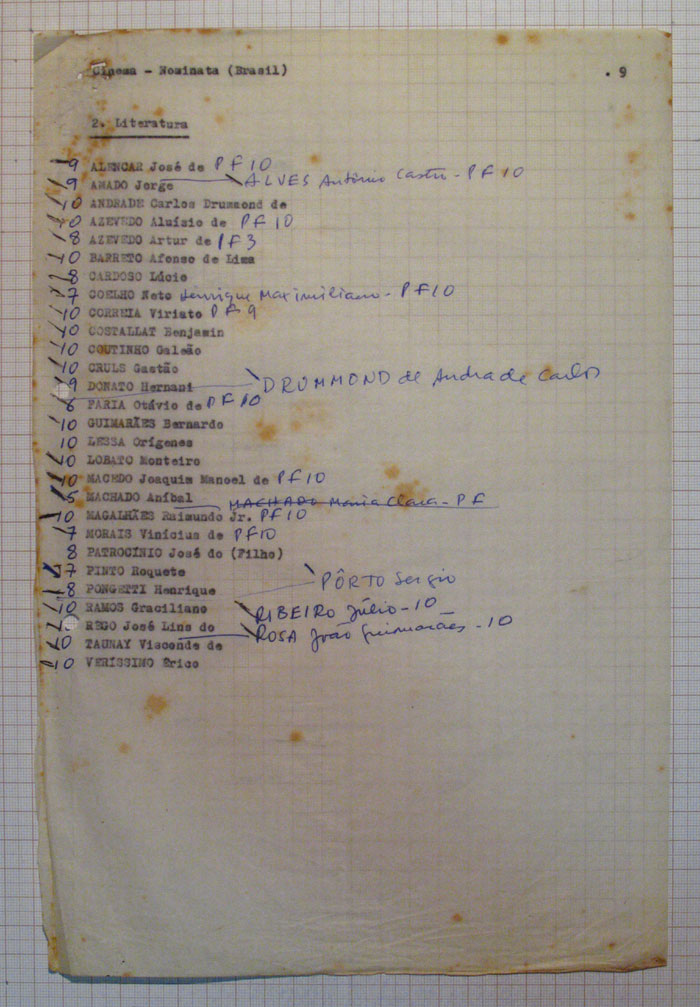 Cinema - Nominata (Brasil) . 9
2. Literatura
9 ALENCAR José de PF10
9 AMADO Jorge ALVES Antônio Castro - PF10
10 ANDRADE Carlos Drummond de
10 AZEVEDO Aluísio de PF10
8 AZEVEDO Artur de PF3
10 BARRETO Afonso de Lima
8 CARDOSO Lúcio
7 COELHO Neto Henrique Maximiliano - PF10
10 CORREIA Viriato PF9
10 COSTALLAT Benjamin
10 COUTINHO Galeão
10 CRULS Gastão
9 DONATO Hernani DRUMMOND de Andrade Carlos
8 FARIA Otávio de PF10
10 GUIMARÃES Bernardo
10 LESSA Orígenes
10 LOBATO Monteiro
10 MACEDO Joaquim Manoel de PF10
5 MACHADO Aníbal MACHADO Maria Clara - PF
10 MAGALHÃES Raimundo Jr. PF10
7 MORAIS Vinícius de PF10
8 PATROCÍNIO José do (Filho)
7 PINTO Roquete
8 PONGETTI Henrique PÔRTO Sergio
10 RAMOS Graciliano RIBEIRO Júlio - 10
10 REGO José Lins do ROSA João Guimarães - 10
10 TAUNAY Visconde de
10 VERÍSSIMO Érico